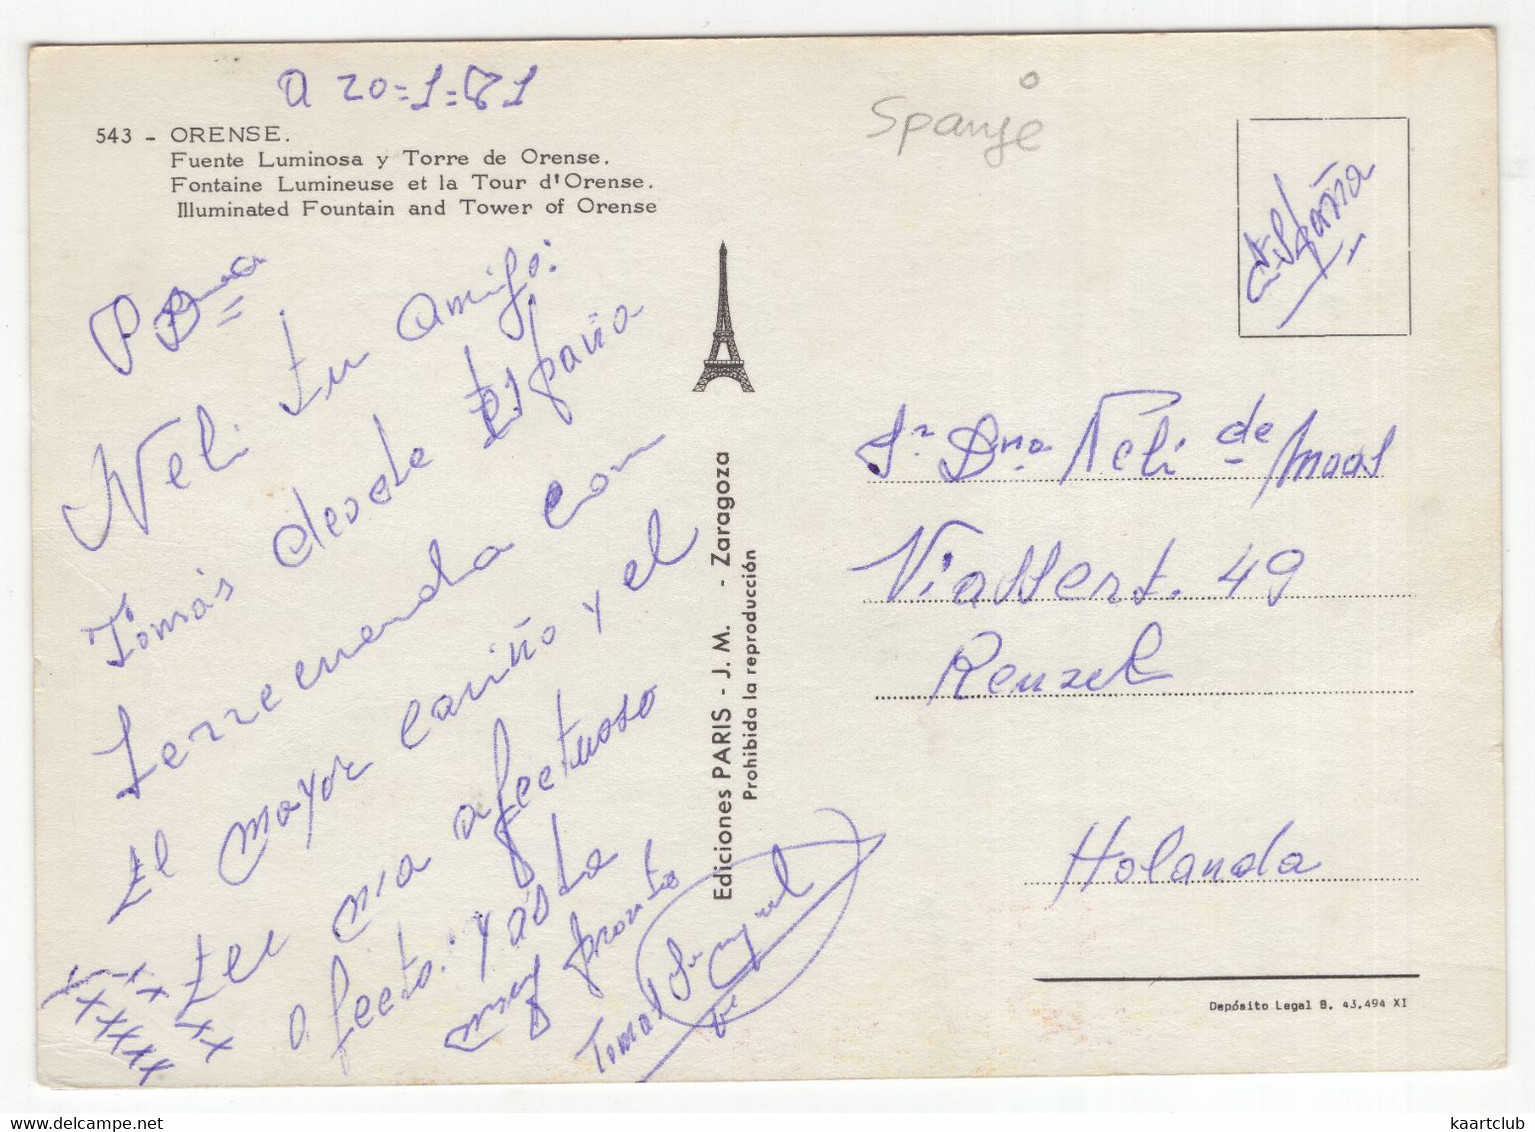 a 20=1=81
543 - ORENSE.
Fuente Luminosa y Torre de Orense.
Fontaine Lumineuse et la Tour d'Orense.
Illuminated Fountain and Tower of Orense
Neli tu amigo:
Tomás desde España
el mayor cariño y el
mia afectuoso
afecto. y asta
muy pronto
Tomas
xx
xxxxx
xx
Ediciones PARIS - J. M. - Zaragoza
Prohibida la reproducción
Spanje
España
Sr Dña Neli de Maas
49
Holanda
Depósito Legal B. 43.494 XI
www.delcampe.net
kaartclub